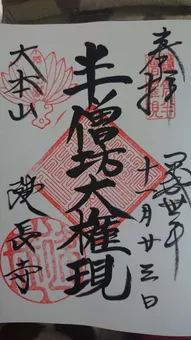 奉拝
十一月廿三日
半僧坊大権現
大本山
建長寺